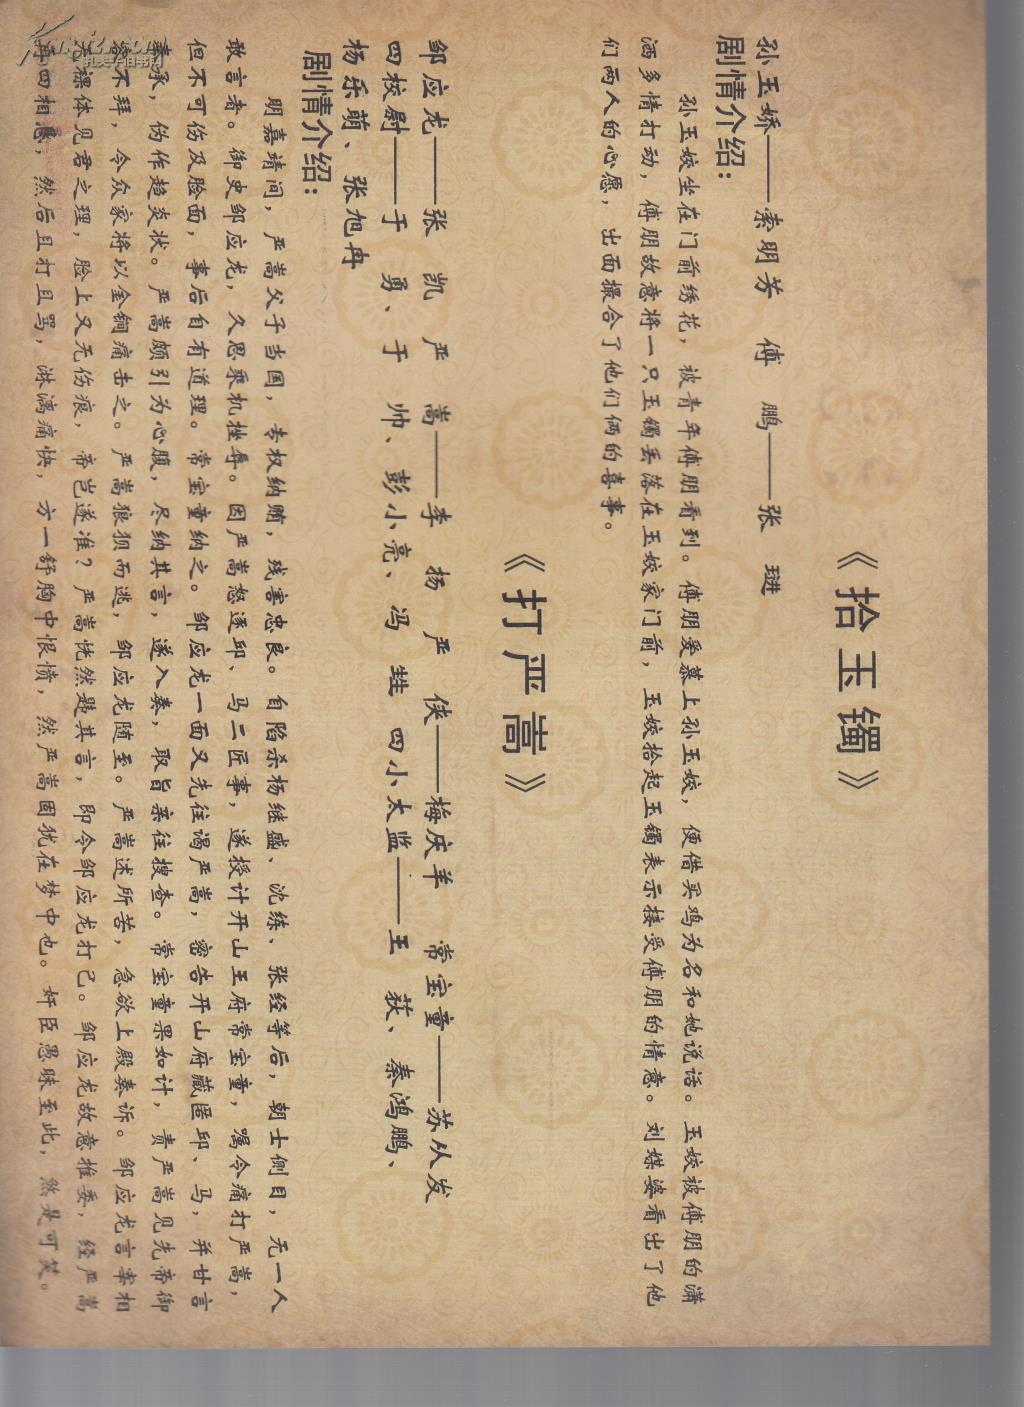 《拾玉镯》
孙玉娇——索明芳 傅 鹏——张 琎
剧情介绍：
孙玉姣坐在门前绣花，被青年傅朋看到。傅朋爱慕上孙玉姣，便借买鸡为名和她说话。玉姣被傅朋的潇
洒多情打动，傅朋故意将一只玉镯丢落在玉姣家门前，玉姣拾起玉镯表示接受傅朋的情意。刘媒婆看出了他
们两人的心愿，出面撮合了他们俩的喜事。
《打严嵩》
邹应龙——张 凯 严 嵩——李 扬 严 侠——梅庆羊 常宝童——苏从发
四校尉——于 勇、于 帅、彭小亮、冯 甡 四小太监——王 荻、秦鸿鹏、
杨乐萌、张旭冉
剧情介绍：
明嘉靖间，严嵩父子当国，专权纳贿，残害忠良。自陷杀杨继盛、沈练、张经等后，朝士侧目，无一人
敢言者。御史邹应龙，久思乘机挫辱。因严嵩怒逐邱、马二匠事，遂授计开山王府常宝童，嘱令痛打严嵩，
但不可伤及脸面，事后自有道理。常宝童纳之。邹应龙一面又先往谒严嵩，密告开山府藏匿邱、马，并甘言
奉承，伪作趋炎状。严嵩颇引为心腹，尽纳其言，遂入奏，取旨亲往搜查。常宝童果如计，责严嵩见先帝御
容不拜，令众家将以金锏痛击之。严嵩狼狈而逃，邹应龙随至。严嵩述所苦，急欲上殿奏诉。邹应龙言宰相
无裸体见君之理，脸上又无伤痕，帝岂遂准？严嵩恍然韪其言，即令邹应龙打己。邹应龙故意推委，经严嵩
再四相恳，然后且打且骂，淋漓痛快，方一舒胸中恨愤，然严嵩固犹在梦中也。奸臣愚昧至此，煞是可笑。